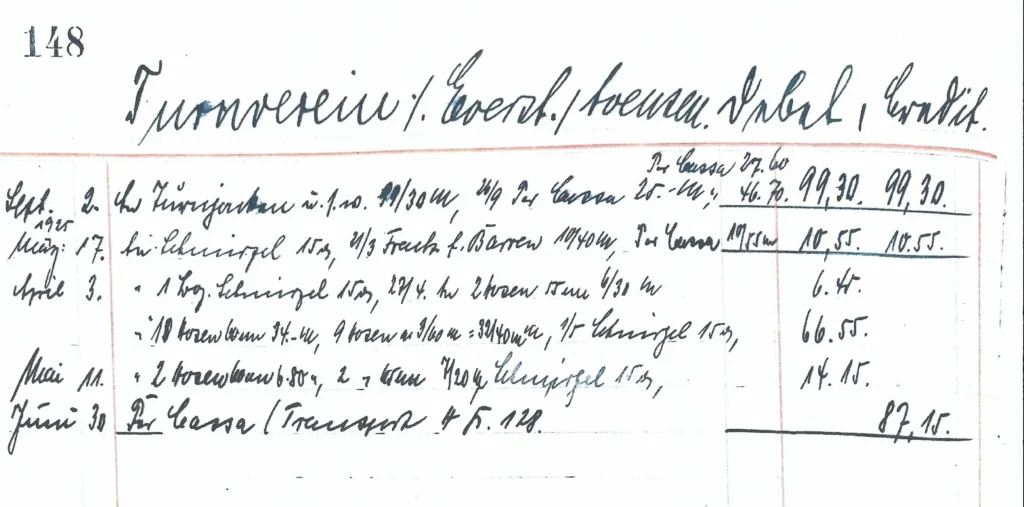 148
Turnverein /. Everst. / Debet, Credit.
Per Cassa 27.60
Sept. 2. An Turnjacken u.s.w. /30 M, 26/9 Per Cassa 25.- M, 46.70. 99,30. 99,30.
1925
März: 17. An Schmirgel 15 , 21/3 Fracht f. Barren 10/40 M, Per Cassa 10/55 10,55. 10.55.
April 3. " 1 Bog. Schmirgel 15 , 27/4. An 2 Hosen 6/30 M 6.45.
" 18 Hosen 34.- M, 9 Hosen 3/60 = 32/40 M, 1/5 Schmirgel 15 , 66.55.
Mai 11. " 2 Hosen 6.80 , 2 " 7/20 Schmirgel 15 , 14.15.
Juni 30 Per Cassa (Transport 128. 87,15.